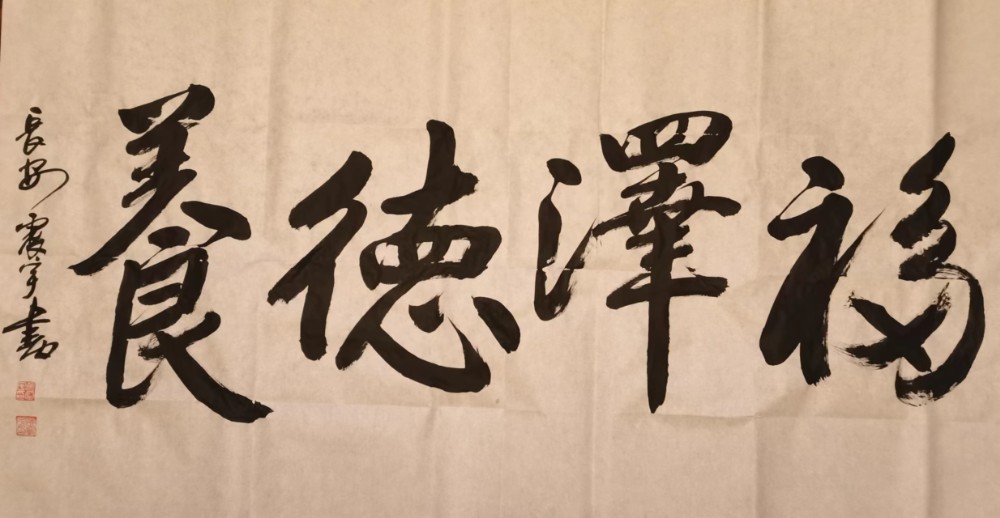 福澤德養
長安震宇書